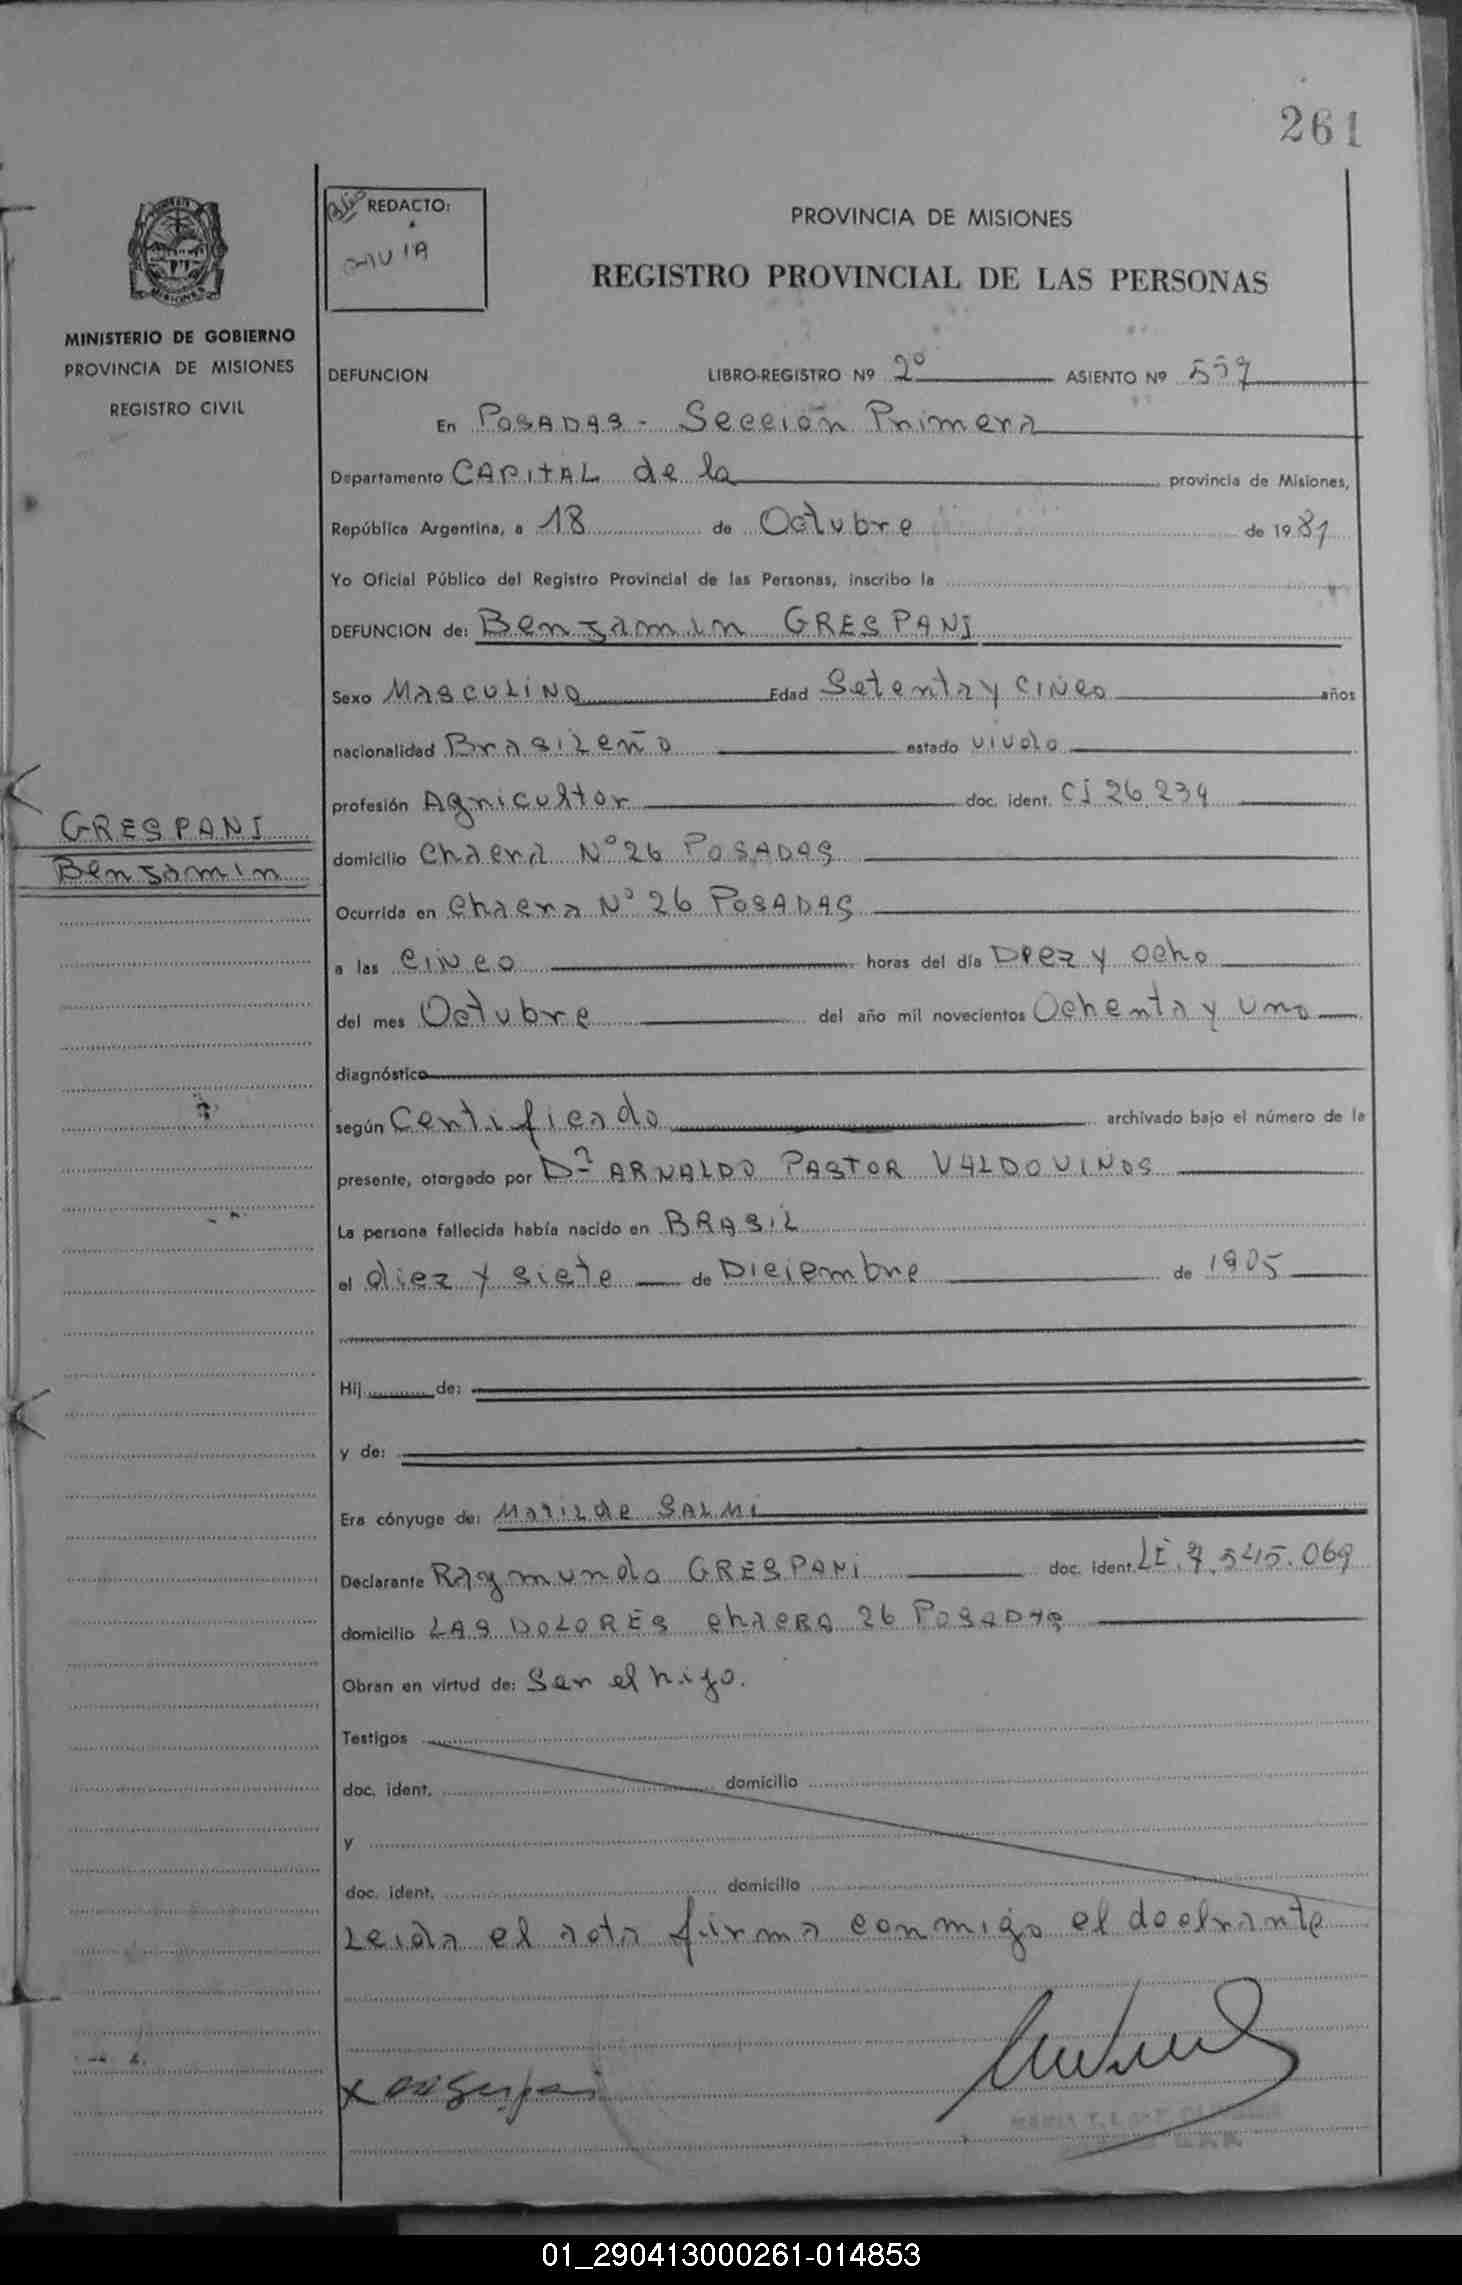 261
REDACTO:
PROVINCIA DE MISIONES
REGISTRO PROVINCIAL DE LAS PERSONAS
MINISTERIO DE GOBIERNO
PROVINCIA DE MISIONES
REGISTRO CIVIL
DEFUNCION LIBRO-REGISTRO Nº 2º ASIENTO Nº 557
En POSADAS - Sección Primera
Departamento CAPITAL de la provincia de Misiones,
República Argentina, a 18 de Octubre de 1981
Yo Oficial Público del Registro Provincial de las Personas, inscribo la
DEFUNCION de: Benjamin GRESPANI
Sexo Masculino Edad Setenta y cinco años
nacionalidad Brasileño estado viudo
profesión Agricultor doc. ident. CI 26.234
GRESPANI
Benjamin
domicilio Chacra Nº 26 POSADAS
Ocurrida en Chacra Nº 26 POSADAS
a las cinco horas del día Diez y ocho
del mes Octubre del año mil novecientos Ochenta y uno
diagnóstico
según Certificado archivado bajo el número de la
presente, otorgado por Dr ARNALDO PASTOR VALDOVINOS
La persona fallecida había nacido en BRASIL
el diez y siete de Diciembre de 1905
Hij de:
y de:
Era cónyuge de: Matilde SALMI
Declarante Raymundo GRESPANI doc. ident. LE. 7.545.069
domicilio LAS DOLORES chacra 26 POSADAS
Obran en virtud de: Ser el hijo.
Testigos
doc. ident. domicilio
y
doc. ident. domicilio
Leida el acta firma conmigo el declrante
01_290413000261-014853